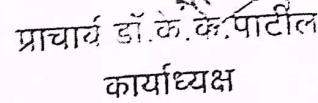 प्राचार्य डॉ.के.के.पाटील
कार्याध्यक्ष